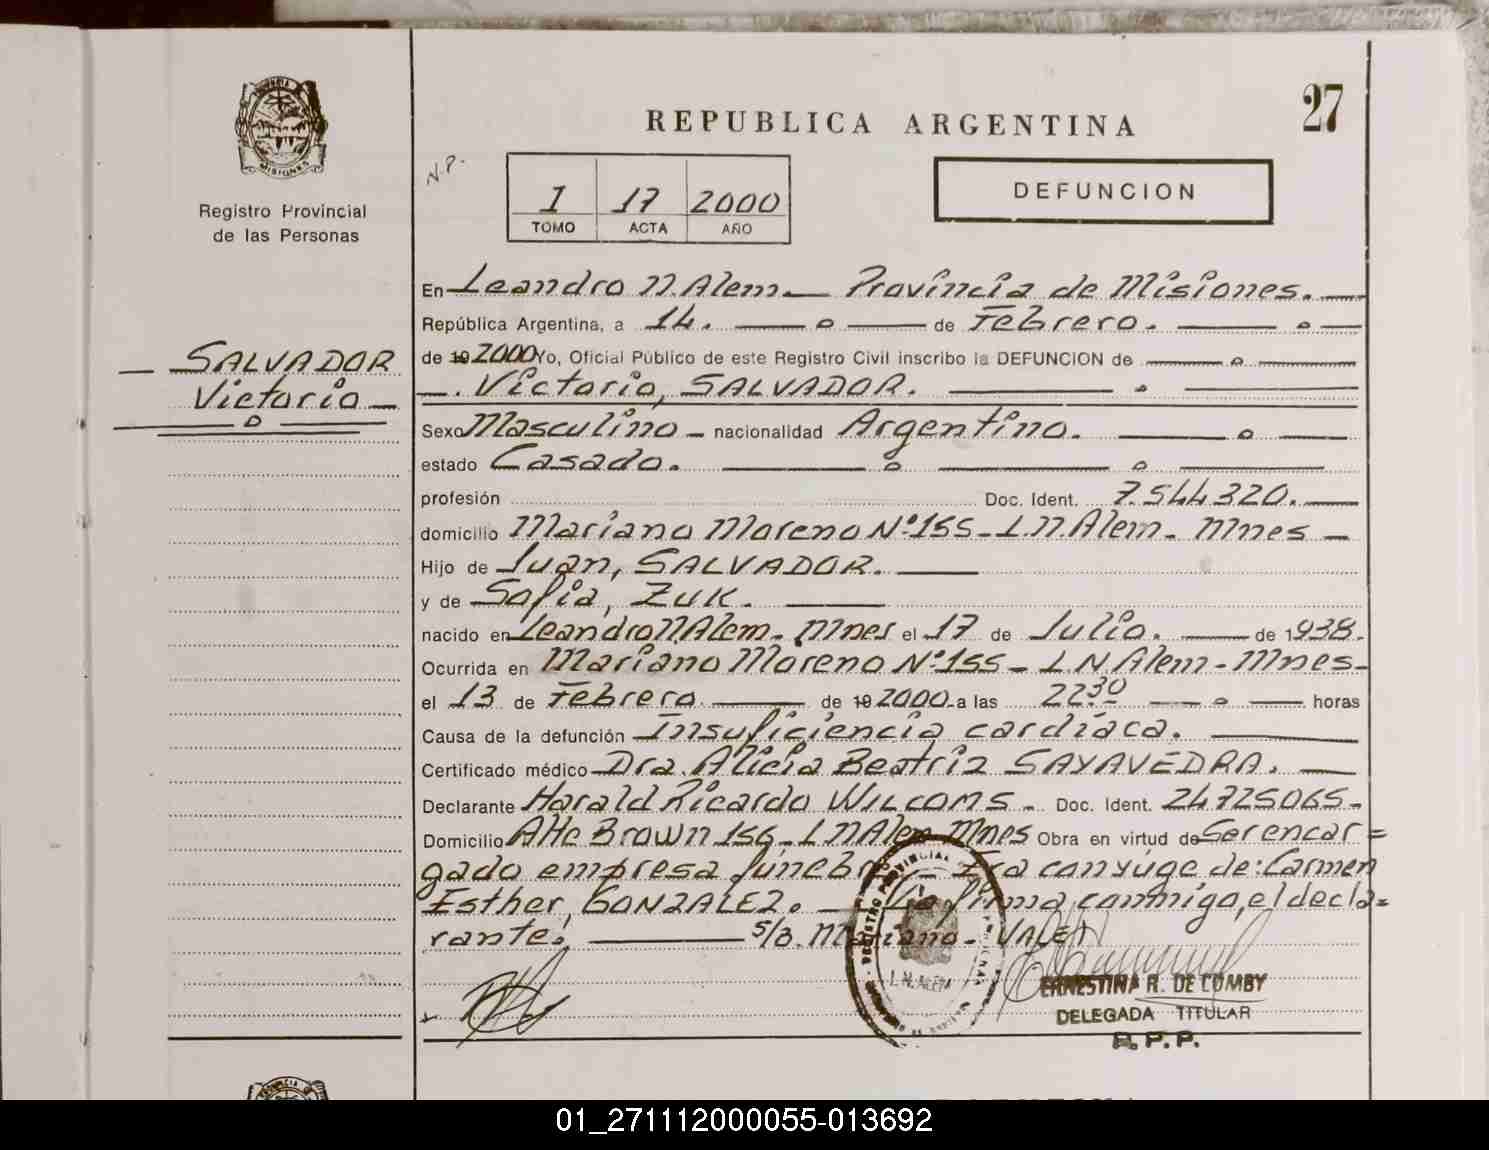 27
REPUBLICA ARGENTINA
N.P.
1 17 2000
TOMO ACTA AÑO
DEFUNCION
PROVINCIA DE MISIONES
Registro Provincial
de las Personas
SALVADOR
Victorio
En Leandro N. Alem. Provincia de Misiones.
República Argentina, a 14. de Febrero.
de 19 2000 Yo, Oficial Público de este Registro Civil inscribo la DEFUNCION de
Victorio, SALVADOR.
Sexo Masculino - nacionalidad Argentino.
estado Casado.
profesión Doc. Ident. 7.544.320.
domicilio Mariano Moreno Nº 155 - L.N. Alem - Mnes -
Hijo de Juan, SALVADOR.
y de Sofia, ZUK.
nacido en Leandro N. Alem - Mnes el 17 de Julio. de 1938.
Ocurrida en Mariano Moreno Nº 155 - L.N. Alem - Mnes -
el 13 de Febrero de 19 2000 - a las 22 30 horas
Causa de la defunción Insuficiencia cardíaca.
Certificado médico Dra. Alicia Beatriz SAYAVEDRA.
Declarante Harald Ricardo WILCOMS - Doc. Ident. 24725065 -
Domicilio Alte Brown 156 - L N Alem Mnes Obra en virtud de Ser encar=
gado empresa fúnebre Era conyúge de: Carmen
Esther, GONZALEZ. firma conmigo, el decla=
rante. S/B. Mariano - VALE
REGISTRO PROVINCIAL
L. N. ALEM
ERNESTINA R. DE COMBY
DELEGADA TITULAR
R. P. P.
01_271112000055-013692